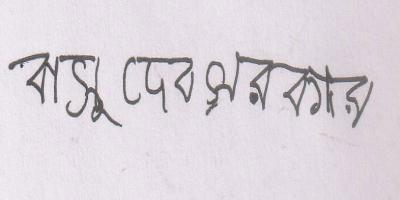 বাসুদেব সরকার